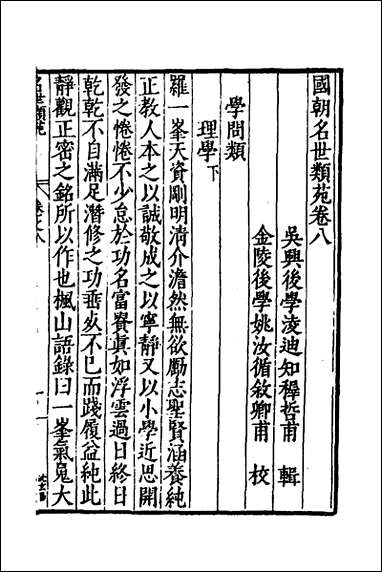 國朝名世類苑卷八
吳興後學淩迪知穉哲甫 輯
金陵後學姚汝循敘卿甫 校
學問類
理學下
羅一峯天資剛明清介澹然無欲勵志聖賢涵養純
正教人本之以誠敬成之以寧靜又以小學近思開
發之惓惓不少怠於功名富貴真如浮雲過目終日
乾乾不自滿足潛修之功垂歿不巳而踐履益純此
靜觀正密之銘所以作也楓山語錄曰一峯氣鬼大
名世類苑 卷之八